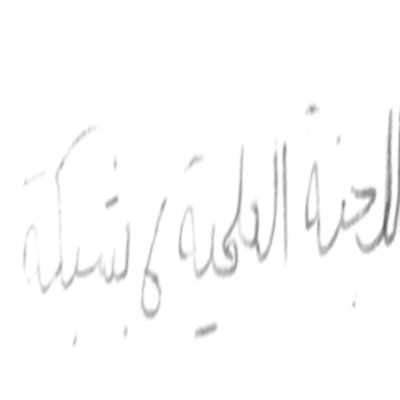 اللجنة العلمية لشبكة